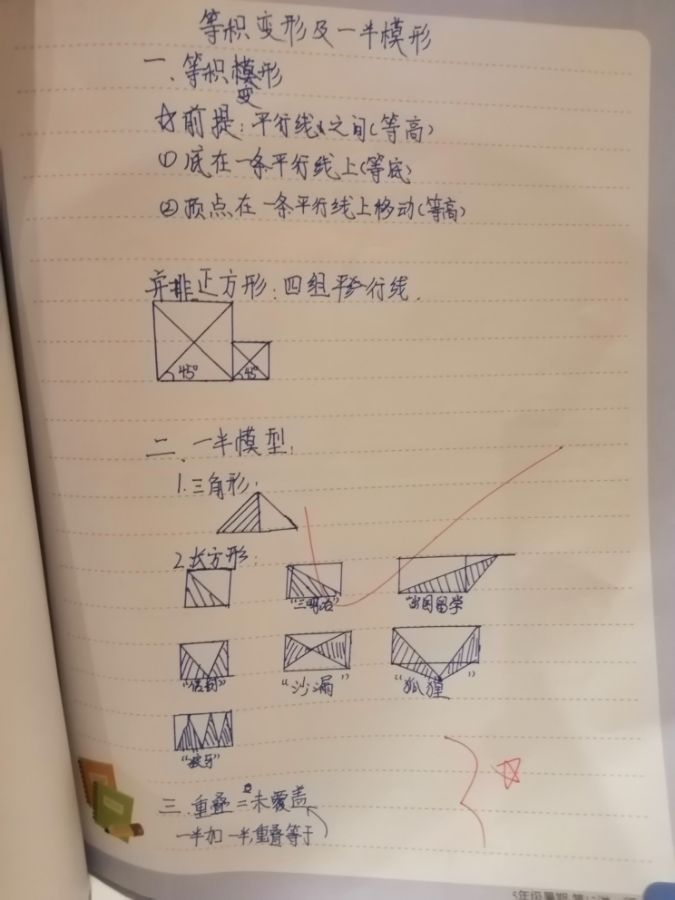 等积变形及一半模形
一、等积模形
变
前提：平行线之间(等高)
① 底在一条平行线上(等底)
② 顶点在一条平行线上移动(等高)
并排正方形：四组平行线.
45° 45°
二、一半模型：
1.三角形：
2.长方形：
"三明治" 出国留学
"信封" "沙漏" "狐狸"
三、重叠=未覆盖
一半加一半,重叠等于